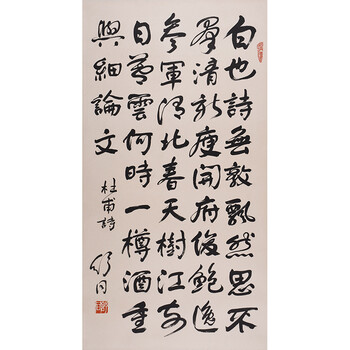 白也詩無敵飄然思不
羣清新庾開府俊鮑逸
參軍渭北春天樹江東
日暮雲何時一樽酒重
與細論文
杜甫詩
舒同